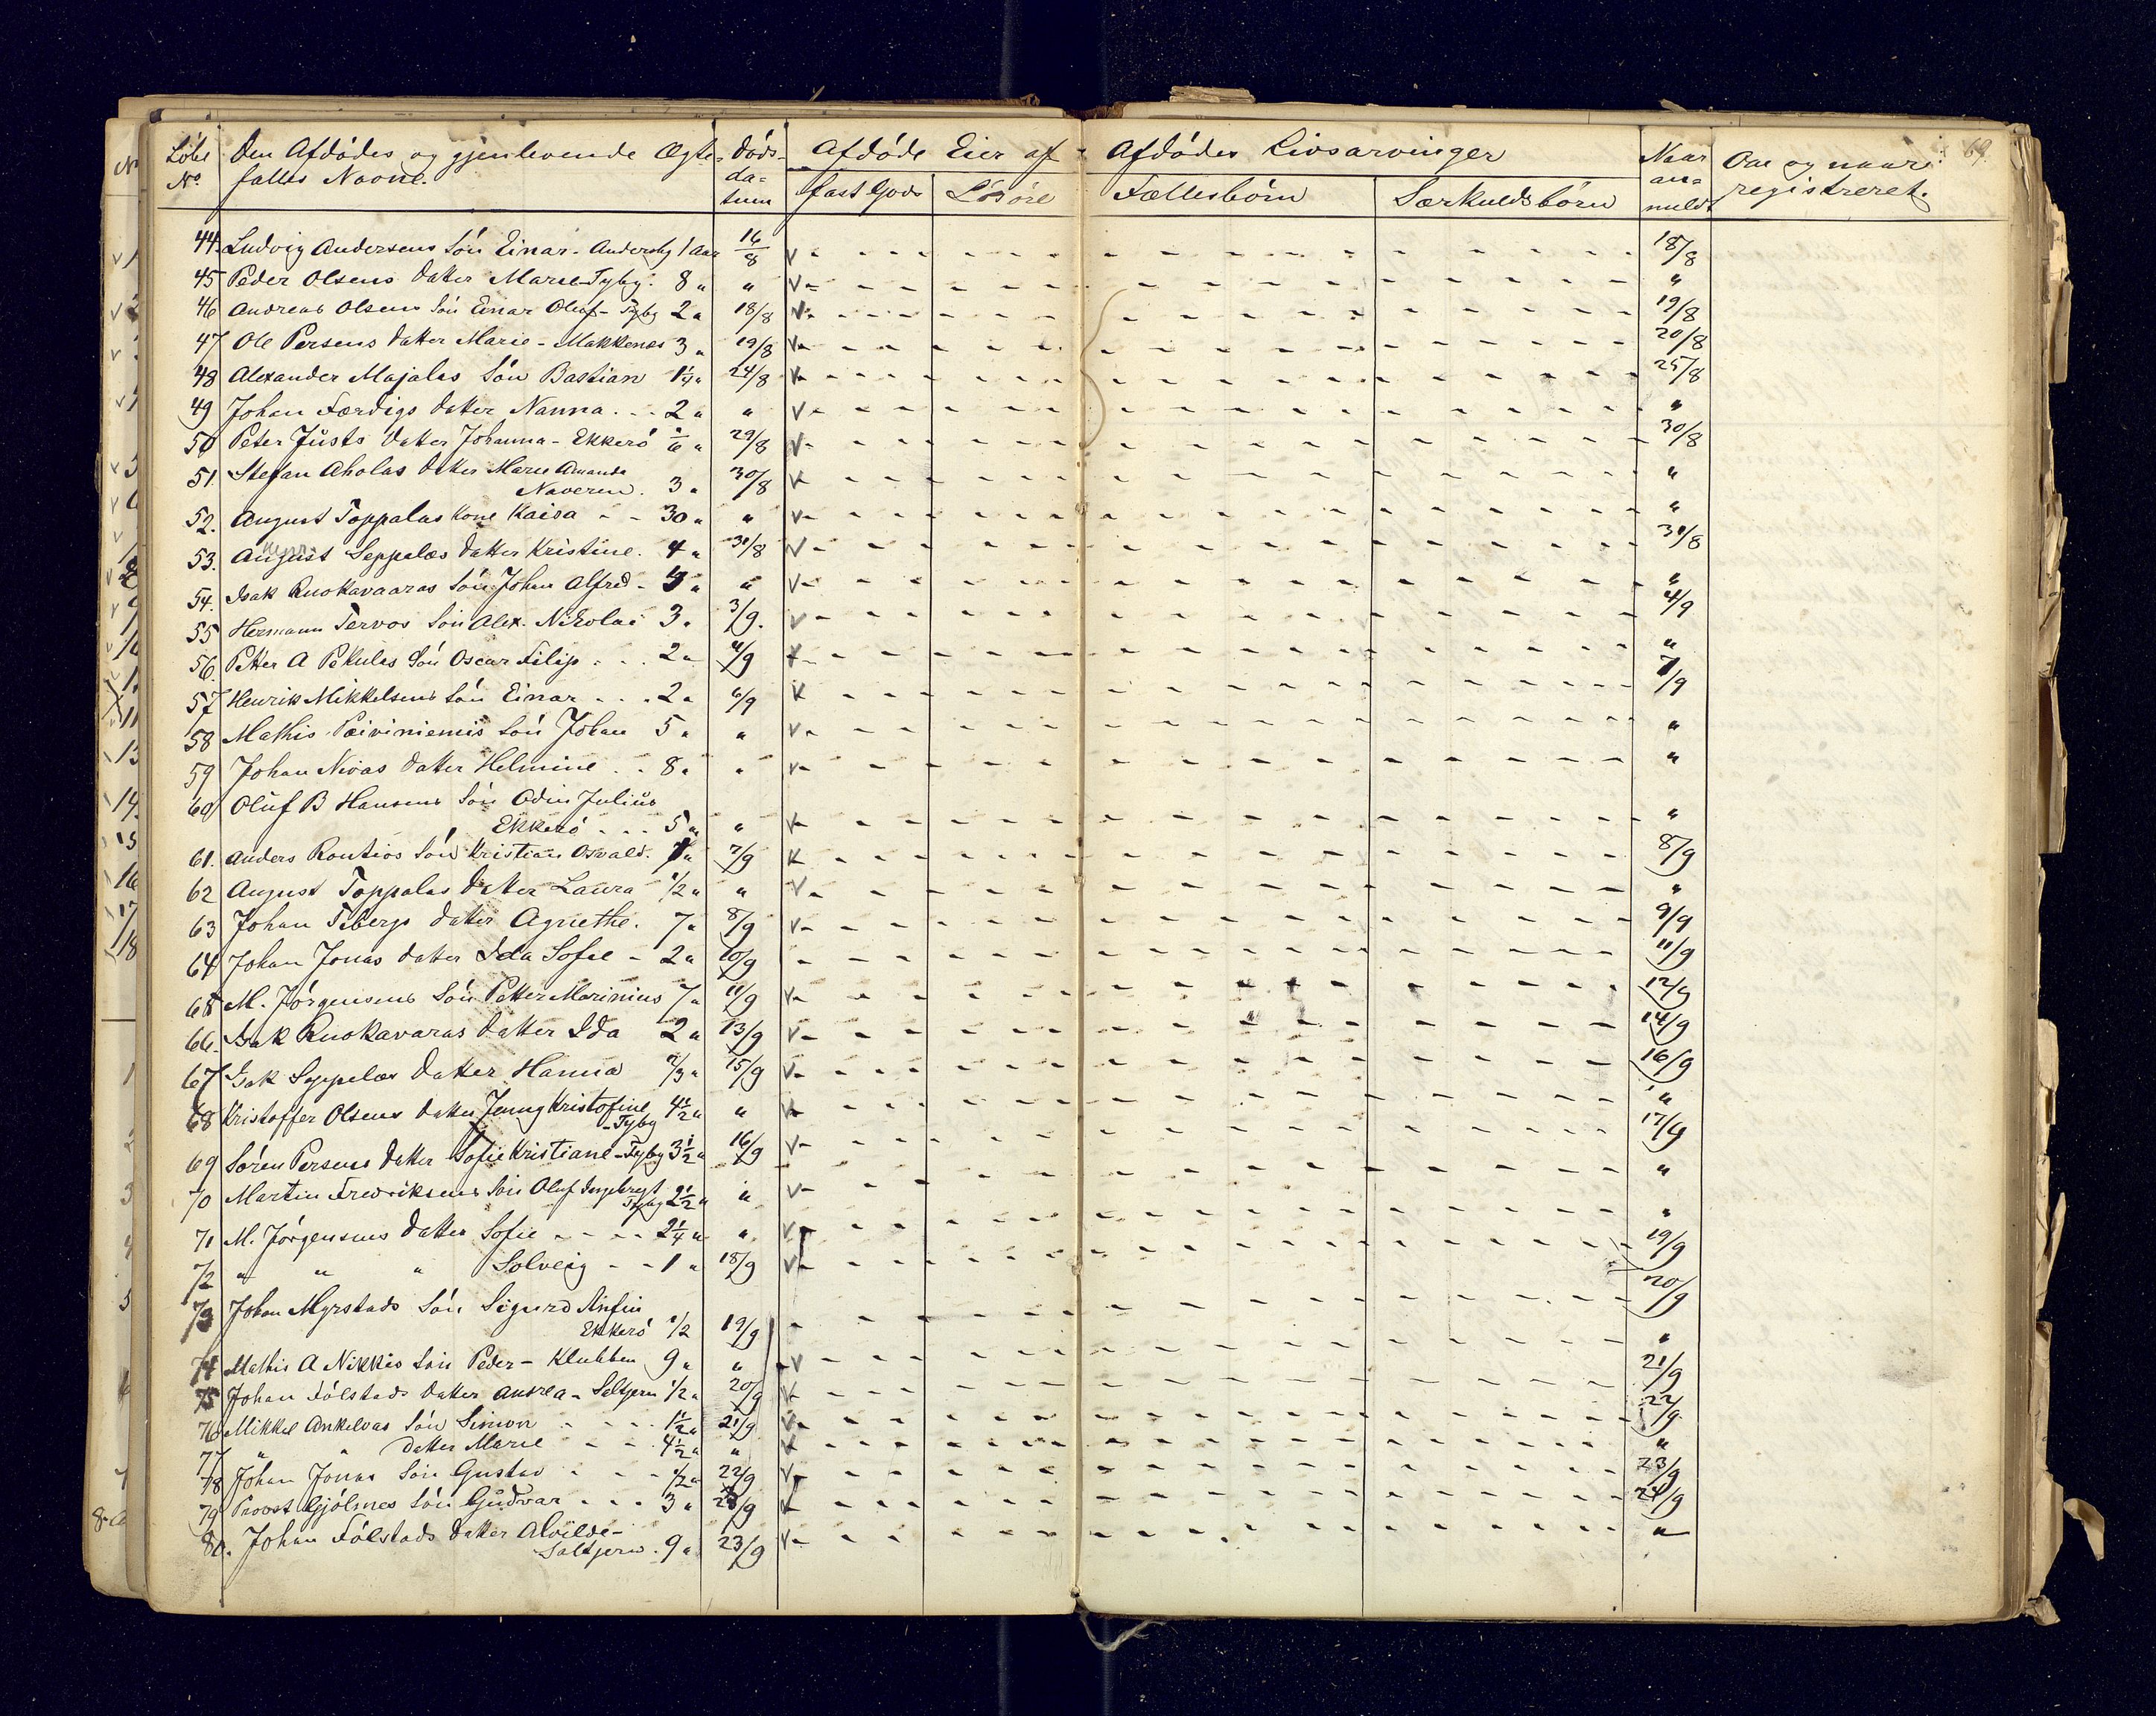 Löbe No. Den Afdødes og gjenlevende Ægtefælles Navne. Døds-datum Afdøde Eier af Afdødes Livsarvinger Naar anmeldt Om og naar registreret. 69.
fast Gods Løsøre Fællesbørn Særkuldsbørn
44. Ludvig Andersens Søn Einar - Andersby 1 Aar 16/8 18/8
45 Peder Olsens Datter Marie - Tyby. 8 " " "
46 Andreas Olsens Søn Einar Oluf - Tyby 2 " 18/8 19/8
47 Ole Persens Datter Marie - Makkenes 3 " 19/8 20/8
48 Alexander Majalas Søn Bastian 1 1/4 " 24/8 25/8
49 Johan Færdigs Datter Nanna 2 " " "
50 Peter Justs Datter Johanna - Ekkerö " 29/8 30/8
51. Stefan Aholas Datter Marie Amanda
Naveren. 3 " 30/8 "
52. August Toppalas Kone Kaisa 30 " " "
53. August Seppalas Datter Kristine. 4 " 31/8 31/8
54. Isak Ruokavaaras Søn Johan Alfred " " "
55 Hermann Tervos Søn Alex. Nikolai 3 " 3/9. 4/9
56. Petter A Pekulas Søn Oscar Filip 2 " 4/9 "
57 Henrik Mikkelsens Søn Einar 2 " 6/9 7/9
58 Mathis Paiviniemis Søn Johan 5 " " "
59 Johan Nivas Datter Helmine 8 " " "
60 Oluf B Hansens Søn Odin Julius
Ekkerö 5 " " "
61. Anders Rontios Søn Kristian Osvald. 1 " 7/9 8/9
62 August Toppalas Datter Laura 1/2 " " "
63 Johan Tibergs Datter Agnethe. 7 " 8/9 9/9
64 Johan Jonas Datter Ida Sofie 2 " 10/9 11/9
65 M. Jörgensens Søn Petter Marinius 7 " 11/9 12/9
66. Isak Ruokavaras Datter Ida 2 " 13/9 14/9
67 Isak Seppelas Datter Hanna 2/3 " 15/9 16/9
68 Kristoffer Olsens Datter Jenny Kristofine
- Tyby 4 1/2 " " "
69 Søren Persens Datter Sofie Kristiane - Tyby 3 1/2 " 16/9 17/9
70 Martin Fredriksens Søn Oluf Ingebregt
Tyby 2 1/2 " " "
71 M. Jörgensens Datter Sofie 2 1/4 " " "
72 " " " Solveig 1 " 18/9 19/9
73 Johan Myrstads Søn Sigurd Anfin
Ekkerö 1/2 19/9 20/9
74 Mathis A Nikkis Søn Peder - Klubben 9 " " "
75 Johan Fölstads Datter Andrea - Saltjern 1/2 " 20/9 21/9
76 Mikkel Ankelvas Søn Simon 1 1/2 " 21/9 22/9
77 " " Datter Marie 4 1/2 " " "
78 Johan Jonas Søn Gustav 1/2 " 22/9 23/9
79 Provst Gjölmes Søn Gudvar 3 " 23/9 24/9
80. Johan Fölstads Datter Alvilde -
Saltjern. 9 " 23/9 "